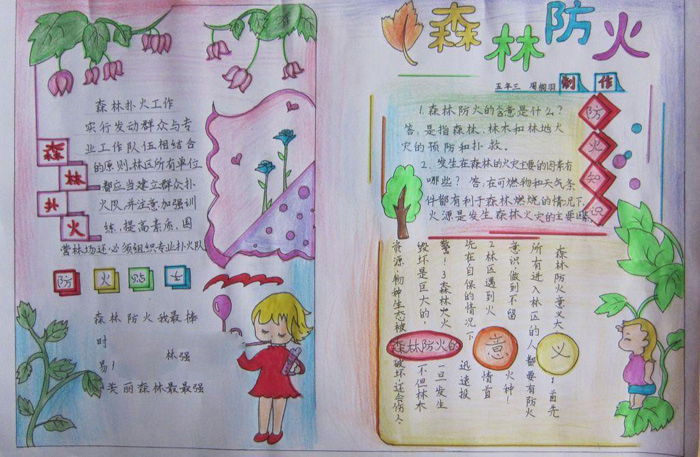 森林防火
五年三
制作
森林扑火
森林扑火工作
实行发动群众与专
业工作队伍相结合
的原则,林区所有单位
都应当建立群众扑
火队,并注意加强训
练,提高素质,国
营林场还必须组织专业扑火队
防火贴士
森林防火我最棒
时
林强
易!
美丽森林最最强
防火知识
1.森林防火的含意是什么?
答,是指森林、林木和林地火
灾的预防和扑救。
2、发生在森林的火灾主要的因素有
哪些? 答,在可燃物和天气条
件都有利于森林燃烧的情况下,
火源是发生森林火灾的主要
森林防火的意义
森林防火意义大:1首先
所有进入林区的人都要有防火
意识做到不留火种!
2林区遇到火情首
先在自保的情况下迅速报
警!3森林火灾一旦发生
毁坏是巨大的,不但林木
资源,物种生态被破坏还会伤人.